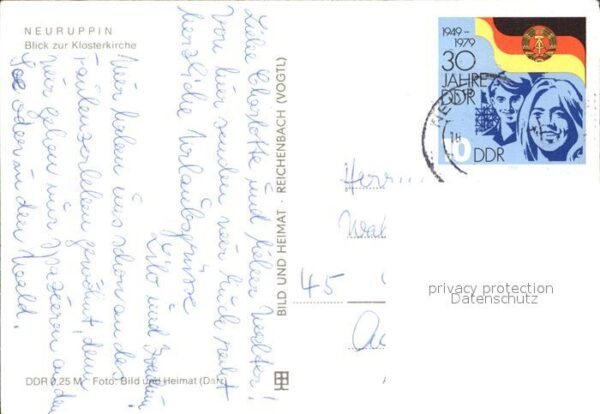 NEURUPPIN
Blick zur Klosterkirche
Liebe Charlotte und lieber Walter!
Von hier senden wir Euch recht
herzliche Urlaubsgrüsse
Lilo und
Wir haben uns schon an das
Faulenzerleben gewöhnt, denn
wir gehen nur spazieren an den
See oder in den Wald.
DDR 0,25 M Foto: Bild und Heimat (Darr)
BILD UND HEIMAT · REICHENBACH (VOGTL)
1949-
1979
30
JAHRE
DDR
10 DDR
Herr...
45
privacy protection
Datenschutz